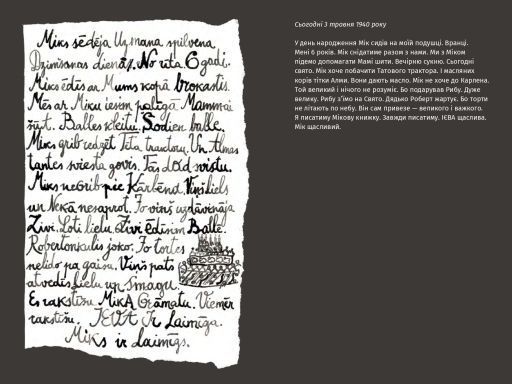 Miks sēdēja Uz mana spilvena
Dzimšanas dienā. No rīta 6 gadi.
Miks ēdīs ar Mums kopā brokastis.
Mēs ar Miku iesim palīgā Mammai
šūt. Balles kleitu. Šodien balle.
Miks grib redzēt Tēta traktoru. Un Almas
tantes sviesta govis. Tās dod sviestu.
Miks negrib pie Kārbēna. Viņš liels
un Nekā nesaprot. Jo viņš uzdāvināja
Zivi. Ļoti lielu. Zivi ēdīsim Ballē.
Robertonkulis joko. Jo tortes
nelido pa gaisu. Viņš pats
atvedīs lielu un smagu.
Es rakstīšu MikA Grāmatu. Vienmēr
rakstīšu. IEVA Ir Laimīga.
Miks ir Laimīgs.
Сьогодні 3 травня 1940 року
У день народження Мік сидів на моїй подушці. Вранці.
Мені 6 років. Мік снідатиме разом з нами. Ми з Міком
підемо допомагати Мамі шити. Вечірню сукню. Сьогодні
свято. Мік хоче побачити Татового трактора. І масляних
корів тітки Алми. Вони дають масло. Мік не хоче до Карпена.
Той великий і нічого не розуміє. Бо подарував Рибу. Дуже
велику. Рибу з'їмо на Свято. Дядько Роберт жартує. Бо торти
не літають по небу. Він сам привезе — великого і важкого.
Я писатиму Мікову книжку. Завжди писатиму. ІЄВА щаслива.
Мік щасливий.